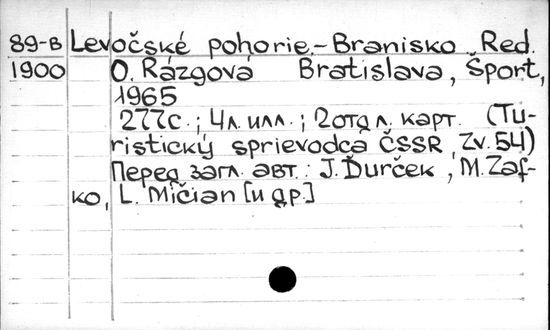 89-В Levočské pohorie.-Branisko Red.
1900 O. Rázgová Bratislava, Šport,
1965
277с.; 4л. илл.; 2отд л. карт. (Tu-
ristický sprievodca ČSSR, Zv. 54)
Перед загл. авт.: J. Ďurček, M. Zaf-
ko, L. Mičian [и др.]